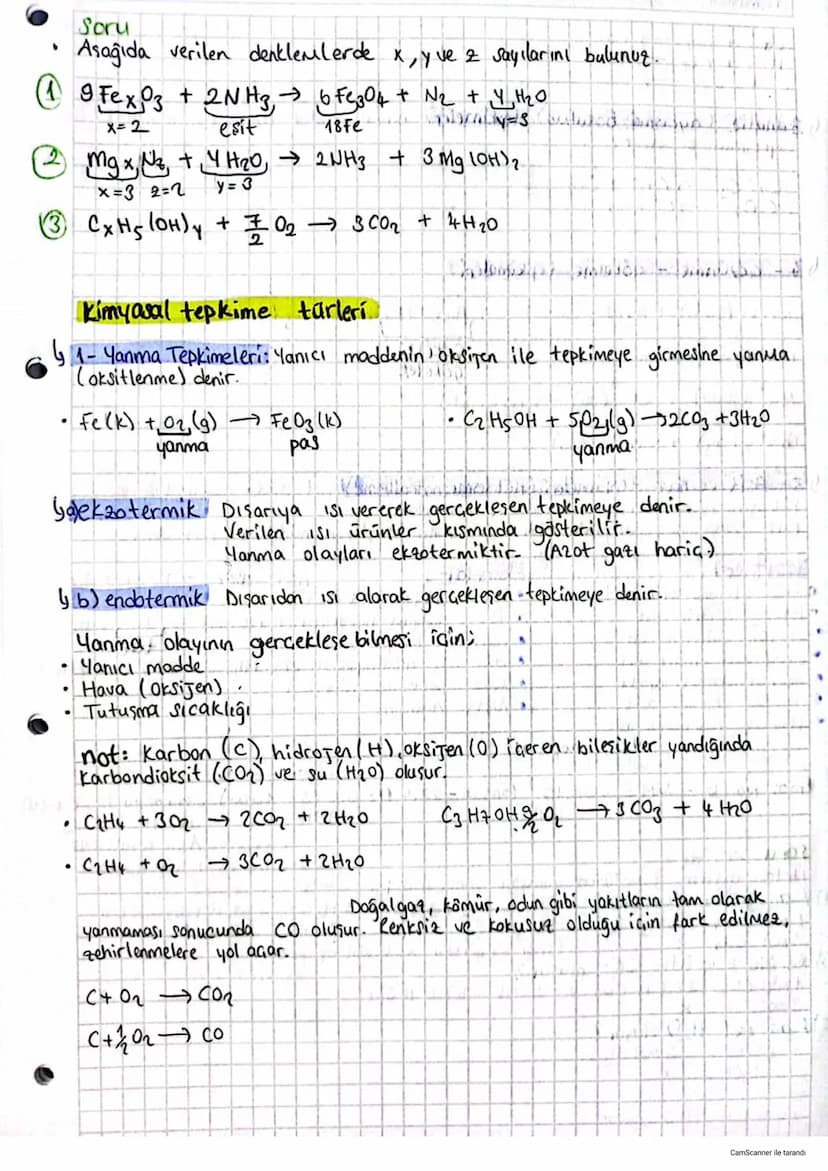 Soru
• Aşağıda verilen denklemlerde x, y ve z sayılarını bulunuz.
① 9FexO3 + 2NH3 → 6Fe3O4 + N2 + yH2O
x=2 eşit 18Fe y=3
② MgxNz + yH2O → 2NH3 + 3Mg(OH)2
x=3 z=2 y=3
③ CxH5(OH)y + 7/2 O2 → 3CO2 + 4H2O
Kimyasal tepkime türleri
↳ 1- Yanma Tepkimeleri: Yanıcı maddenin oksijen ile tepkimeye girmesine yanma
(oksitlenme) denir.
• Fe(k) + O2(g) → FeO3(k) • C2H5OH + 5O2(g) → 2CO3 + 3H2O
yanma pas yanma
↳ a) ekzotermik Dışarıya ısı vererek gerçekleşen tepkimeye denir.
Verilen ısı ürünler kısmında gösterilir.
Yanma olayları ekzotermiktir. (Azot gazı hariç)
↳ b) endotermik Dışarıdan ısı alarak gerçekleşen tepkimeye denir.
Yanma olayının gerçekleşebilmesi için;
• Yanıcı madde
• Hava (oksijen)
• Tutuşma sıcaklığı
not: Karbon (C), hidrojen (H), oksijen (O) içeren bileşikler yandığında
karbondioksit (CO2) ve su (H2O) oluşur.
• C2H4 + 3O2 → 2CO2 + 2H2O C3H7OH 9/2 O2 → 3CO3 + 4H2O
• C2H4 + O2 → 3CO2 + 2H2O
Doğalgaz, kömür, odun gibi yakıtların tam olarak
yanmaması sonucunda CO oluşur. Renksiz ve kokusuz olduğu için fark edilmez,
zehirlenmelere yol açar.
C + O2 → CO2
C + 1/2 O2 → CO
CamScanner ile tarandı